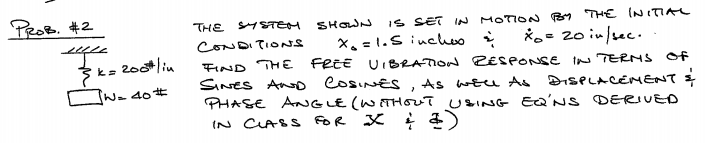 PROB. #2
THE SYSTEM SHOWN IS SET IN MOTION BY THE INITIAL
CONDITIONS X₀ = 1.5 inches & ẋ₀ = 20 in/sec.
FIND THE FREE VIBRATION RESPONSE IN TERMS OF
SINES AND COSINES, AS WELL AS DISPLACEMENT &
PHASE ANGLE (WITHOUT USING EQ'NS DERIVED
IN CLASS FOR X & Φ)
k = 200#/in
W = 40#